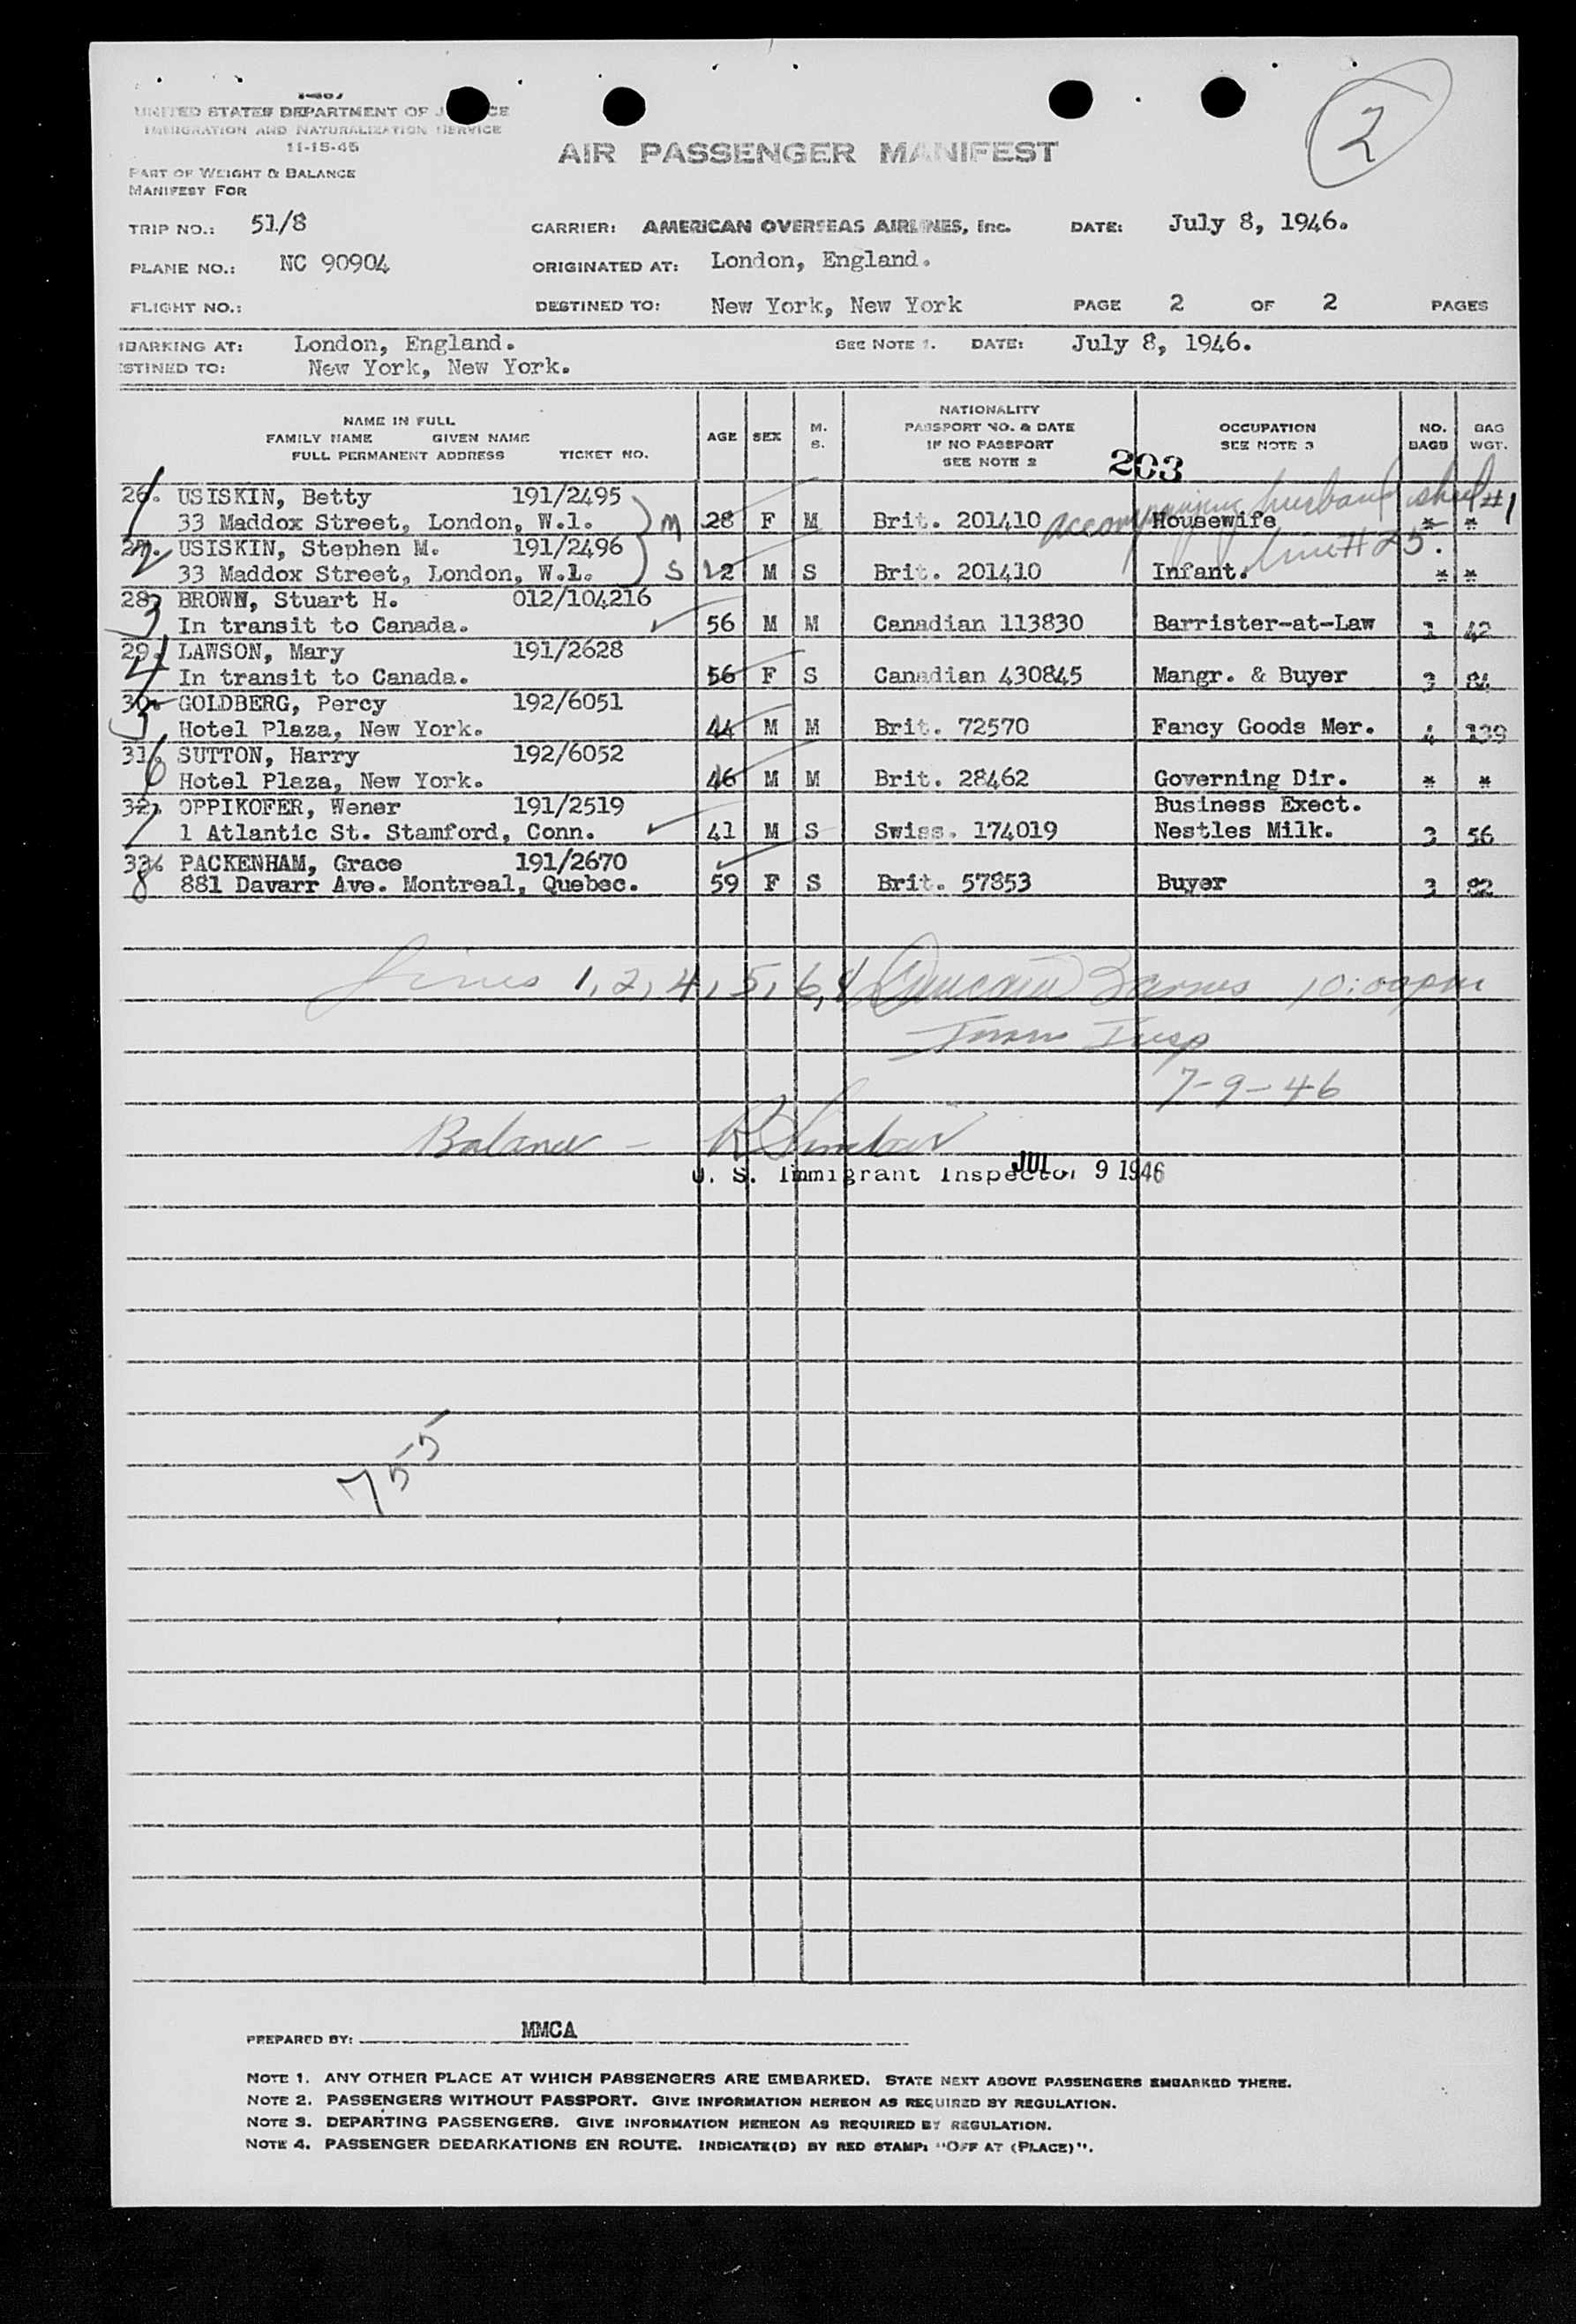 2
UNITED STATES DEPARTMENT OF J CE
IMMIGRATION AND NATURALIZATION SERVICE
11-15-45
AIR PASSENGER MANIFEST
PART OF WEIGHT & BALANCE
MANIFEST FOR
TRIP NO.: 51/8 CARRIER: AMERICAN OVERSEAS AIRLINES, Inc. DATE: July 8, 1946.
PLANE NO.: NC 90904 ORIGINATED AT: London, England.
FLIGHT NO.: DESTINED TO: New York, New York PAGE 2 OF 2 PAGES
MBARKING AT: London, England. SEE NOTE 1. DATE: July 8, 1946.
ESTINED TO: New York, New York.
NAME IN FULL
FAMILY NAME GIVEN NAME
FULL PERMANENT ADDRESS TICKET NO.
AGE SEX M. S.
NATIONALITY
PASSPORT NO. & DATE
IF NO PASSPORT
SEE NOTE 2
OCCUPATION
SEE NOTE 3
NO. BAGS
BAG WGT.
203
26. USISKIN, Betty 191/2495
1 33 Maddox Street, London, W.1. M 28 F M Brit. 201410 Housewife * *
accompanying husband sheet #1
line # 25.
27. USISKIN, Stephen M. 191/2496
2 33 Maddox Street, London, W.1. S 2 M S Brit. 201410 Infant. * *
28. BROWN, Stuart H. 012/104216
3 In transit to Canada. 56 M M Canadian 113830 Barrister-at-Law 1 42
29. LAWSON, Mary 191/2628
4 In transit to Canada. 56 F S Canadian 430845 Mangr. & Buyer 3 84
30. GOLDBERG, Percy 192/6051
5 Hotel Plaza, New York. 44 M M Brit. 72570 Fancy Goods Mer. 4 139
31. SUTTON, Harry 192/6052
6 Hotel Plaza, New York. 46 M M Brit. 28462 Governing Dir. * *
32. OPPIKOFER, Wener 191/2519 Business Exect.
7 1 Atlantic St. Stamford, Conn. 41 M S Swiss. 174019 Nestles Milk. 3 56
33. PACKENHAM, Grace 191/2670
8 881 Davarr Ave. Montreal, Quebec. 59 F S Brit. 57853 Buyer 3 82
Lines 1, 2, 4, 5, 6, 8 Duncan Barnes 10:00 pm
Imm Insp
7-9-46
Balance -
U. S. Immigrant Inspector JUL 9 1946
755
PREPARED BY: MMCA
NOTE 1. ANY OTHER PLACE AT WHICH PASSENGERS ARE EMBARKED. STATE NEXT ABOVE PASSENGERS EMBARKED THERE.
NOTE 2. PASSENGERS WITHOUT PASSPORT. GIVE INFORMATION HEREON AS REQUIRED BY REGULATION.
NOTE 3. DEPARTING PASSENGERS. GIVE INFORMATION HEREON AS REQUIRED BY REGULATION.
NOTE 4. PASSENGER DEBARKATIONS EN ROUTE. INDICATE(D) BY RED STAMP: "OFF AT (PLACE)".